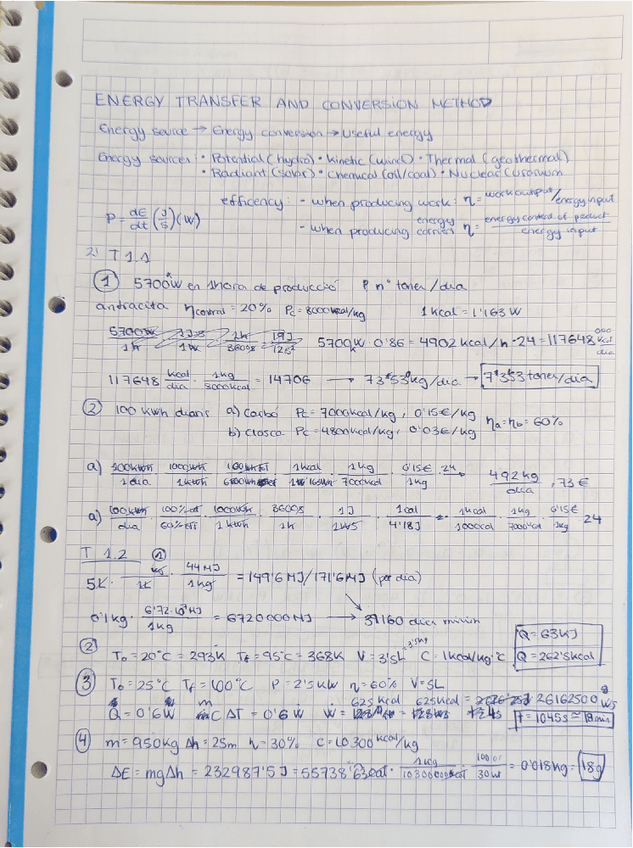 ENERGY TRANSFER AND CONVERSION METHOD
Energy source → Energy conversion → Useful energy
Energy sources: • Potential (hydro) • Kinetic (wind) • Thermal (geothermal)
• Radiant (solar) • Chemical (oil/coal) • Nuclear (uranium
efficency: - when producing work: η = work output/energy input
P = dE/dt (J/s) (W)
- when producing energy carriers η = energy content of product/energy input
T 1.1
① 5700W en 1 hora de producció P nº tones/dia
antracita η central = 20% Pc = 8000 kcal/kg 1 kcal = 1'163 W
5700W 0'86 = 4902 kcal/h · 24 = 117648 kcal/dia
117648 kcal/dia · 1kg/8000kcal = 14706 → 73'53 kg/dia → 7'353 tones/dia
② 100 kWh diaris a) Carbó Pc = 7000 kcal/kg, 0'15€/kg
b) Closca Pc = 4800 kcal/kg, 0'03€/kg ηa = ηb = 60%
a) 100kWh/1dia · 1000Wh/1kWh · 1kcal · 1kg/7000kcal · 0'15€/1kg · 24 → 492 kg/dia, 73€
a) 100kWh/dia · 1000Wh/1kWh · 3600s/1h · 1J/1W·s · 1cal/4'18J · 1kcal/1000cal · 1kg/7000kcal · 0'15€/1kg 24
T 1.2 ①
44MJ/1kg = 149'6 MJ/171'6MJ (per dia)
0'1kg · = 6720000MJ → 39160 dies
② To = 20°C = 293K Tf = 95°C = 368K V = 3'5L C = 1kcal/kg·°C
Q = 63KJ
Q = 262'5kcal
③ To = 25°C Tf = 100°C P = 2'5kW η = 60% V = 5L
Q = 0'6W mCΔT = 0'6W W = 625kcal 625kcal = 2616250
t = 1045s
④ m = 950kg Δh = 25m η = 30% C = 10300 kcal/kg
ΔE = mgΔh = 232987'5J = 55738'63cal · 1kg/10300000cal · 100/30 = 0'018kg = 18g